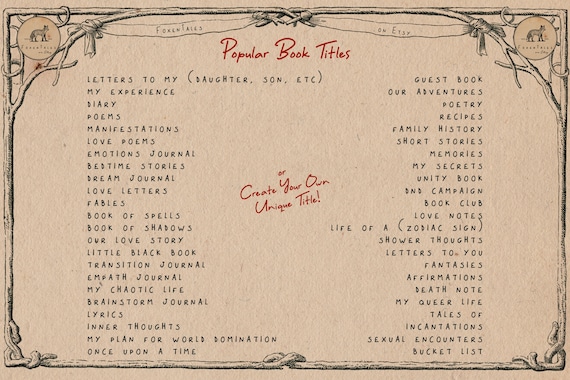 FoxenTales
on Etsy
Popular Book Titles
LETTERS TO MY (DAUGHTER, SON, ETC)
MY EXPERIENCE
DIARY
POEMS
MANIFESTATIONS
LOVE POEMS
EMOTIONS JOURNAL
BEDTIME STORIES
DREAM JOURNAL
LOVE LETTERS
FABLES
BOOK OF SPELLS
BOOK OF SHADOWS
OUR LOVE STORY
LITTLE BLACK BOOK
TRANSITION JOURNAL
EMPATH JOURNAL
MY CHAOTIC LIFE
BRAINSTORM JOURNAL
LYRICS
INNER THOUGHTS
MY PLAN FOR WORLD DOMINATION
ONCE UPON A TIME
or
Create Your Own
Unique Title!
GUEST BOOK
OUR ADVENTURES
POETRY
RECIPES
FAMILY HISTORY
SHORT STORIES
MEMORIES
MY SECRETS
UNITY BOOK
DND CAMPAIGN
BOOK CLUB
LOVE NOTES
LIFE OF A (ZODIAC SIGN)
SHOWER THOUGHTS
LETTERS TO YOU
FANTASIES
AFFIRMATIONS
DEATH NOTE
MY QUEER LIFE
TALES OF
INCANTATIONS
SEXUAL ENCOUNTERS
BUCKET LIST